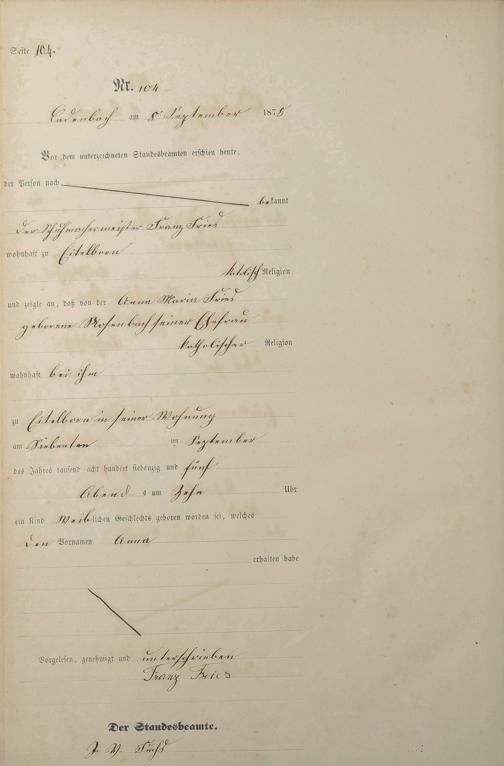 Seite 104.
Nr. 104
Cadenbach am 8 September 1875
Vor dem unterzeichneten Standesbeamten erschien heute,
der Person nach
bekannt
der Schuhmachermeister Franz Fries
wohnhaft zu Eitelborn
katolisch Religion
und zeigte an, daß von der Anna Maria Fries
geborene Rosenbach seiner Ehefrau
katholischer Religion
wohnhaft bei ihm
zu Eitelborn in seiner Wohnung
am Siebenten im September
des Jahres tausend acht hundert siebenzig und fünf
Abend s um Zehn Uhr
ein Kind Weiblichen Geschlechts geboren worden sei, welches
den Vornamen Anna
erhalten habe
Vorgelesen, genehmigt und unterschrieben
Franz Fries
Der Standesbeamte.
J. V. Fuchs